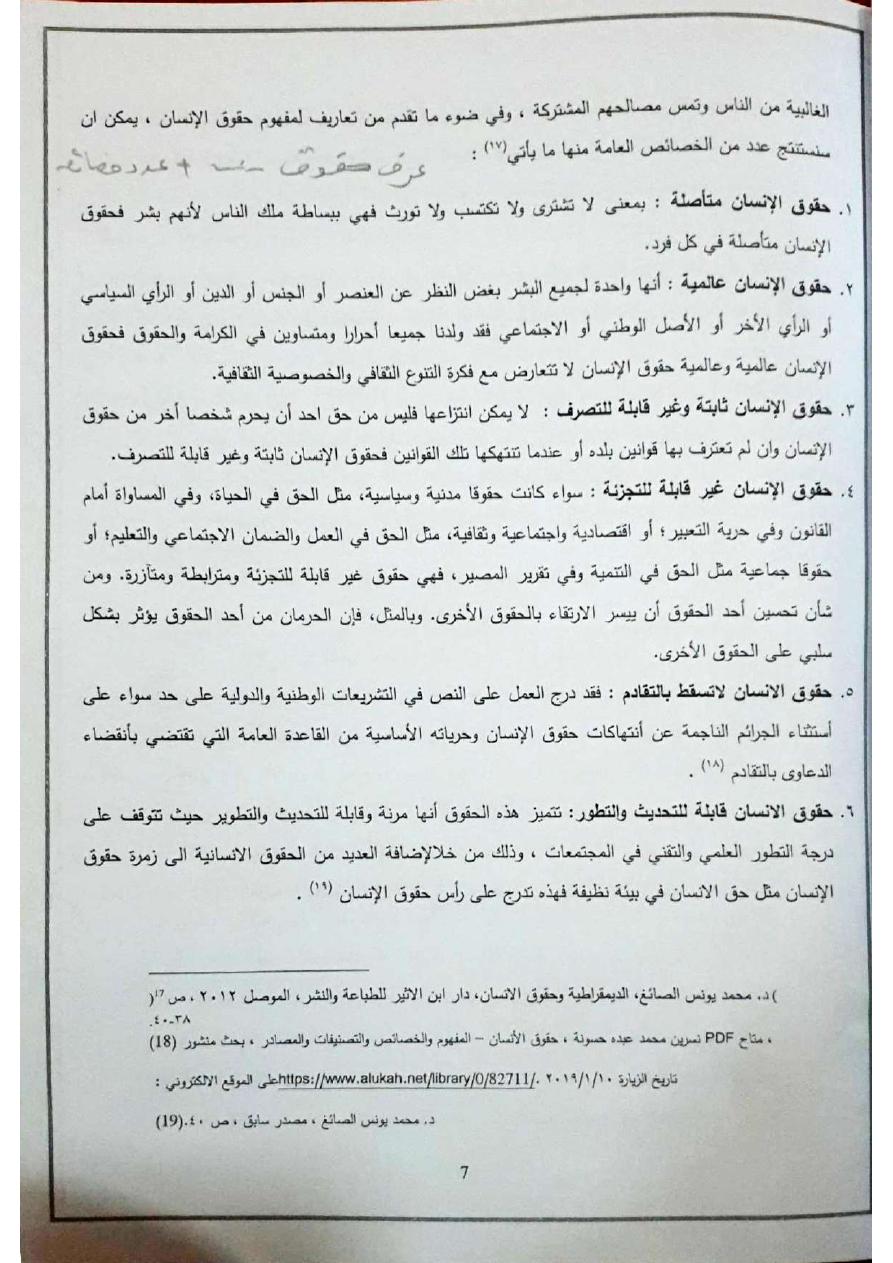 الغالبية من الناس وتمس مصالحهم المشتركة ، وفي ضوء ما تقدم من تعاريف لمفهوم حقوق الإنسان ، يمكن ان
سنستنتج عدد من الخصائص العامة منها ما يأتي(١٧) :
عرف حقوق + عدد خصائصه
١. حقوق الإنسان متأصلة : بمعنى لا تشترى ولا تكتسب ولا تورث فهي ببساطة ملك الناس لأنهم بشر فحقوق
الإنسان متأصلة في كل فرد.
٢. حقوق الإنسان عالمية : أنها واحدة لجميع البشر بغض النظر عن العنصر أو الجنس أو الدين أو الرأي السياسي
أو الرأي الأخر أو الأصل الوطني أو الاجتماعي فقد ولدنا جميعا أحرارا ومتساوين في الكرامة والحقوق فحقوق
الإنسان عالمية وعالمية حقوق الإنسان لا تتعارض مع فكرة التنوع الثقافي والخصوصية الثقافية.
٣. حقوق الإنسان ثابتة وغير قابلة للتصرف : لا يمكن انتزاعها فليس من حق احد أن يحرم شخصا أخر من حقوق
الإنسان وان لم تعترف بها قوانين بلده أو عندما تنتهكها تلك القوانين فحقوق الإنسان ثابتة وغير قابلة للتصرف.
٤. حقوق الإنسان غير قابلة للتجزئة : سواء كانت حقوقا مدنية وسياسية، مثل الحق في الحياة، وفي المساواة أمام
القانون وفي حرية التعبير؛ أو اقتصادية واجتماعية وثقافية، مثل الحق في العمل والضمان الاجتماعي والتعليم؛ أو
حقوقا جماعية مثل الحق في التنمية وفي تقرير المصير، فهي حقوق غير قابلة للتجزئة ومترابطة ومتآزرة. ومن
شأن تحسين أحد الحقوق أن ييسر الارتقاء بالحقوق الأخرى. وبالمثل، فإن الحرمان من أحد الحقوق يؤثر بشكل
سلبي على الحقوق الأخرى.
٥. حقوق الانسان لاتسقط بالتقادم : فقد درج العمل على النص في التشريعات الوطنية والدولية على حد سواء على
أستثناء الجرائم الناجمة عن أنتهاكات حقوق الإنسان وحرياته الأساسية من القاعدة العامة التي تقتضي بأنقضاء
الدعاوى بالتقادم (١٨) .
٦. حقوق الانسان قابلة للتحديث والتطور: تتميز هذه الحقوق أنها مرنة وقابلة للتحديث والتطوير حيث تتوقف على
درجة التطور العلمي والتقني في المجتمعات ، وذلك من خلالإضافة العديد من الحقوق الانسانية الى زمرة حقوق
الإنسان مثل حق الانسان في بيئة نظيفة فهذه تدرج على رأس حقوق الإنسان (١٩) .
)د. محمد يونس الصائغ، الديمقراطية وحقوق الانسان، دار ابن الاثير للطباعة والنشر ، الموصل ٢٠١٢ ، ص 17(
٣٨-٤٠.
، متاح PDF نسرين محمد عبده حسونة ، حقوق الأنسان – المفهوم والخصائص والتصنيفات والمصادر ، بحث منشور (18)
تاريخ الزيارة ٢٠١٩/١/١٠ .https://www.alukah.net/library/0/82711/على الموقع الالكتروني :
د. محمد يونس الصائغ ، مصدر سابق ، ص ٤٠.(19)
7